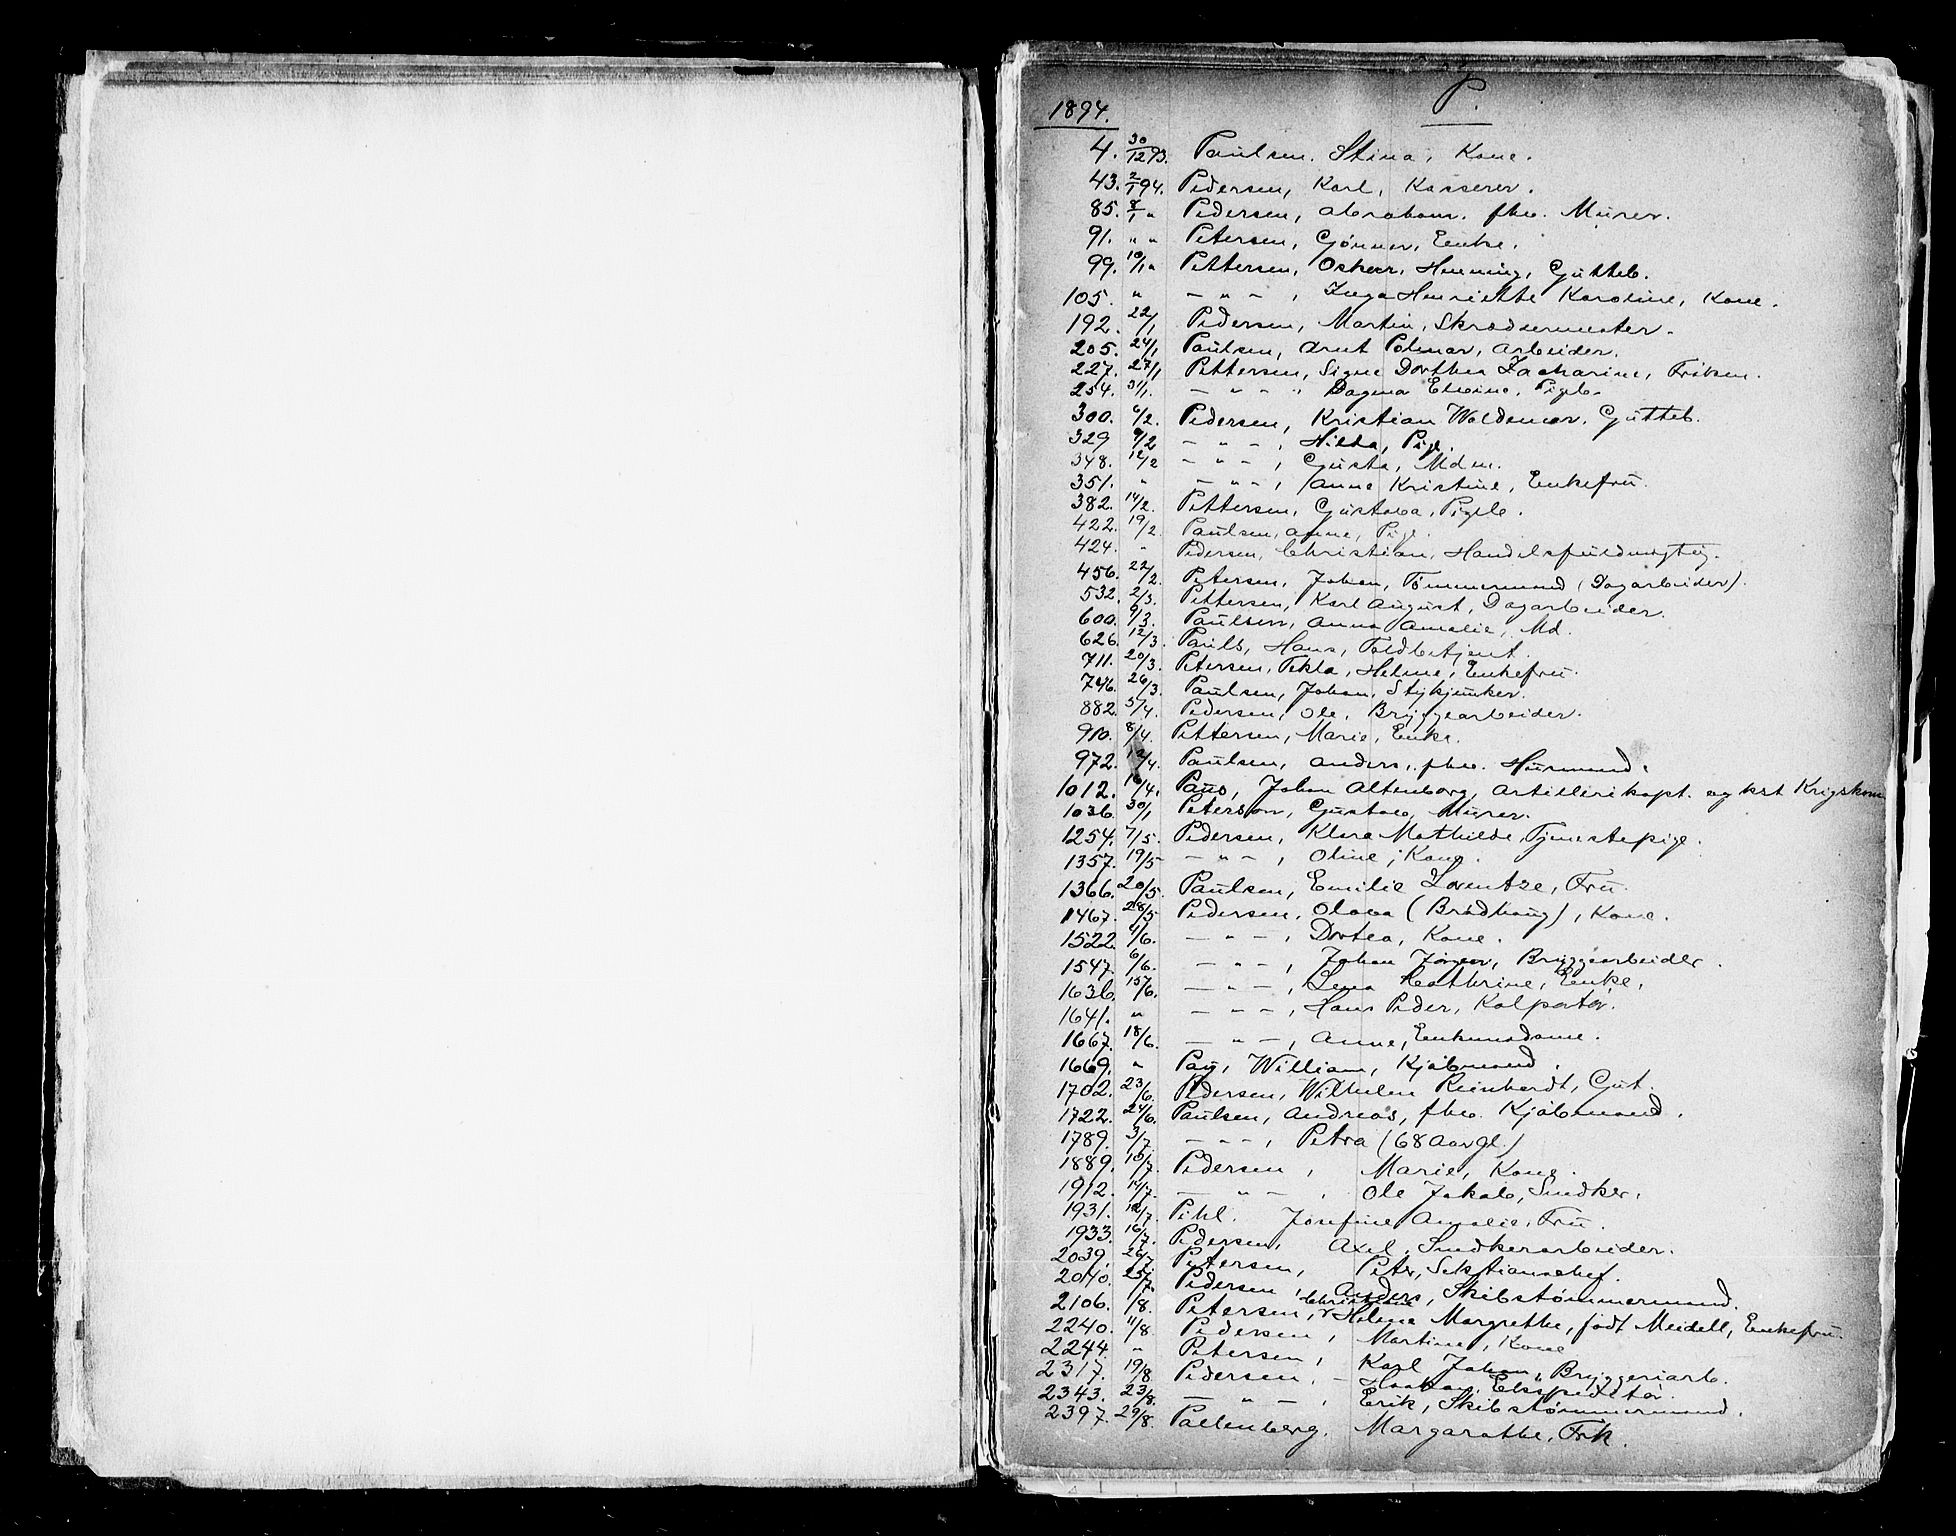 P.
1894.
4. 30/12 93. Paulsen. Stina, Kone.
43. 2/1 94. Pedersen, Karl, Kasserer.
85. 8/1 " Pedersen, Abraham. fhv. Murer.
91. " " Petersen, Gjønner, Enke.
99. 10/1 " Pettersen, Oskar, Henning, Gutteb.
105. " — " — , Inga Henriette Karoline, Kone.
192. 22/1 Pedersen, Martin, Skrædermester.
205. 24/1 Paulsen, Arnt Polmar, Arbeider.
227. 27/1 Pettersen, Signe Dorthea Zacharine, Frøken.
254. 31/1. — " — " Dagma Elvine, Pigeb.
300. 6/2. Pedersen, Kristian Waldemar, Gutteb.
329 9/2 — " — , Hilda, Pige.
348. 12/2 — " — , Gusta, Mdm.
351. " — " — , Anne Kristine, Enkefru.
382. 14/2. Pettersen, Gustava, Pigeb.
422. 19/2. Paulsen, Anne, Pige.
424. " Pedersen, Christian, Handelsfuldmægtig.
456. 22/2. Petersen, Johan, Tømmermand (Dagarbeider).
532. 2/3. Pettersen, Karl August, Dagarbeider.
600. 9/3. Paulsen, Anna Amalie, Md.
626. 12/3. Pauls, Hans, Toldbetjent.
711. 20/3. Petersen, Tekla, Helene, Enkefru.
746. 26/3. Paulsen, Johan, Stykjunker.
882. 5/4. Pedersen, Ole, Bryggearbeider.
910. 8/4. Pettersen, Marie, Enke.
972. 12/4. Paulsen, Anders, fhv. Husmand.
1012. 16/4. Paus, Johan Altenborg, Artillerikapt. og kst Krigskom
1036. 30/1 Peterson, Gustav, Murer.
1254. 7/5. Pedersen, Klara Mathilde, Tjenestepige.
1357. 19/5 — " — , Oline, Kone.
1366. 20/5. Paulsen, Emilie Lorentze, Fru.
1467. 28/5 Pedersen, Olava (Brådhaug), Kone.
1522. 4/6. — " — , Dortea, Kone.
1547. 6/6. — " — , Johan Jørgen, Bryggearbeider.
1636. 15/6. — " — , Lena Cathrine, Enke.
1641. " — " — , Hans Peder, Kolportør.
1667. 18/6. — " — , Anne, Enkemadame.
1669. " Pay, William, Kjøbmand.
1702. 23/6. Pedersen, Wilhelm Reinhardt, Gut.
1722. 24/6. Paulsen, Andreas, fhv. Kjøbmand.
1789. 3/7. — " — , Petra (68 Aar gl.)
1889. 10/7. Pedersen, Marie, Kone.
1912. 14/7. — " — , Ole Jakob, Snedker.
1931. 12/7. Pihl. Josefine Amalie, Fru.
1933. 16/7. Pedersen, Axel, Snedkerarbeider.
2039. 26/7. Petersen, Peter, Sektionschef.
2040. 25/7. Pedersen, Anders, Skibstømmermand.
2106. 1/8. Petersen, Christiane Helena Margrethe, født Meidell, Enkefru.
2240. 11/8. Pedersen, Martine, Kone
2244. " Petersen, Karl Johan, Bryggeriarb.
2317. 19/8. Pedersen, — Haakon, Ekspeditør.
2343. 23/8. — " — , Erik, Skibstømmermand.
2397. 29/8. Pallenberg. Margarethe, Frk.